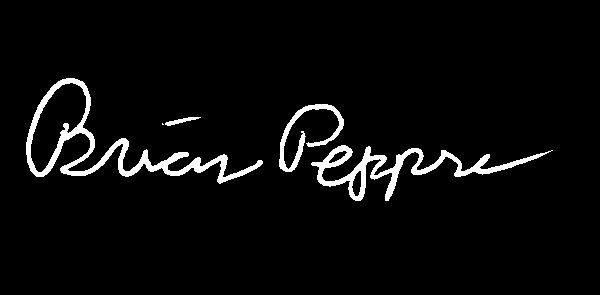 Brian Peppre